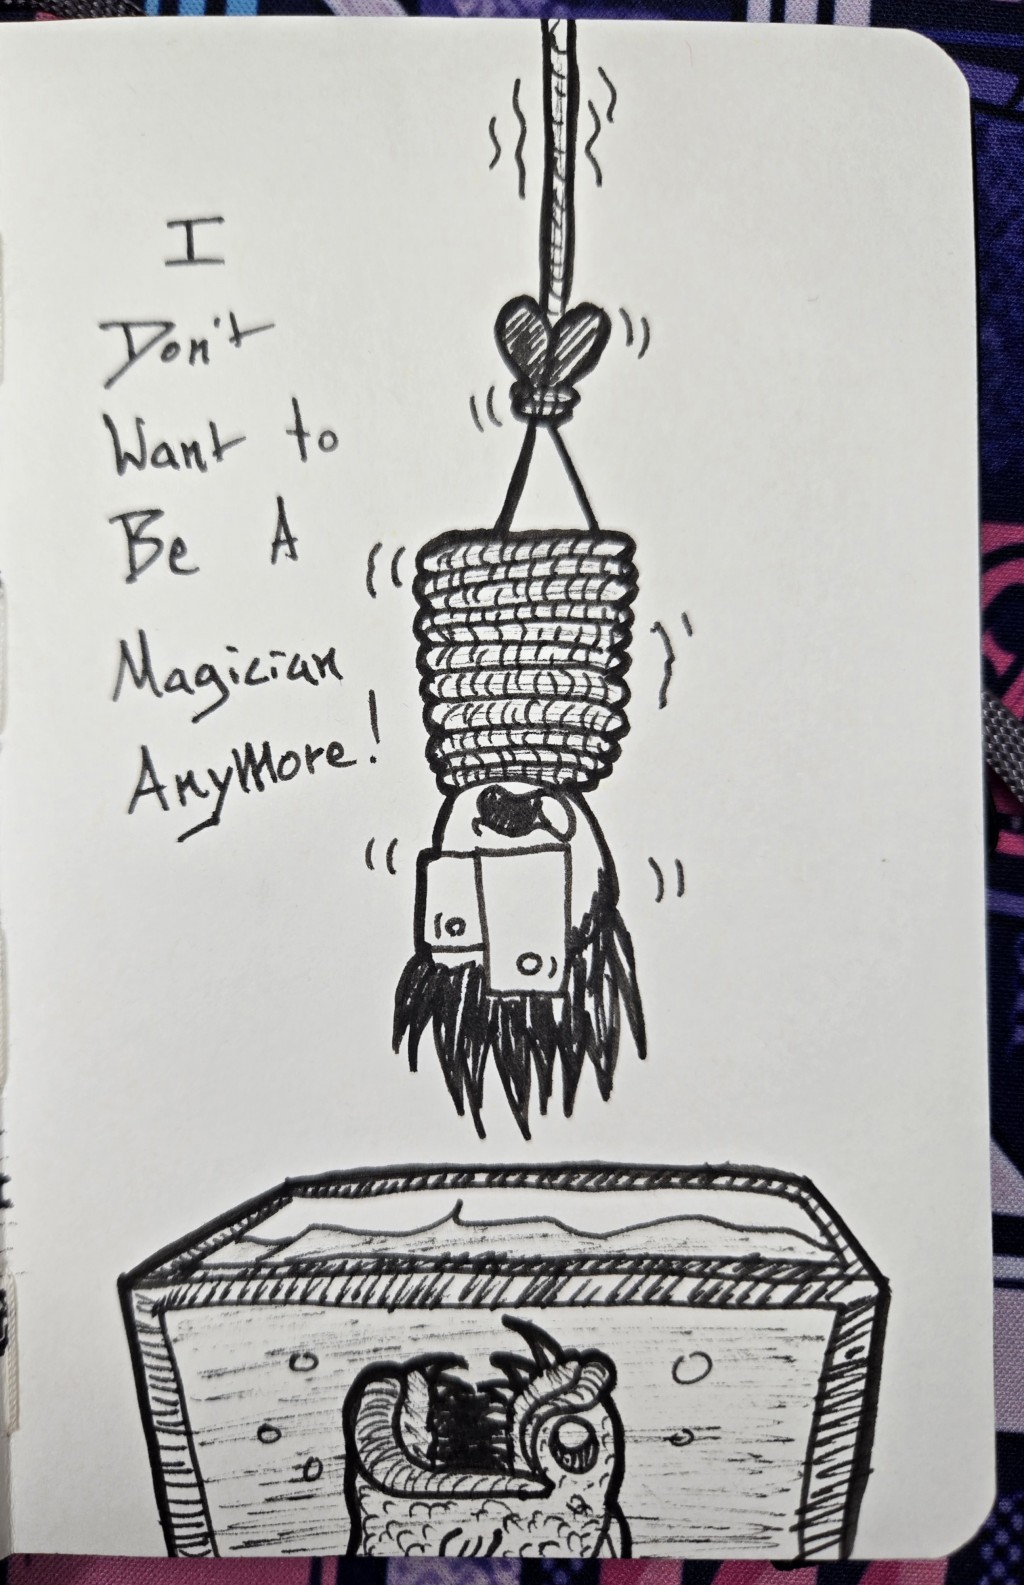 I
Don't
Want to
Be A
Magician
AnyMore!